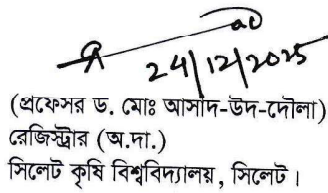 24/12/2025
(প্রফেসর ড. মোঃ আসাদ-উদ-দৌলা)
রেজিস্ট্রার (অ.দা.)
সিলেট কৃষি বিশ্ববিদ্যালয়, সিলেট।